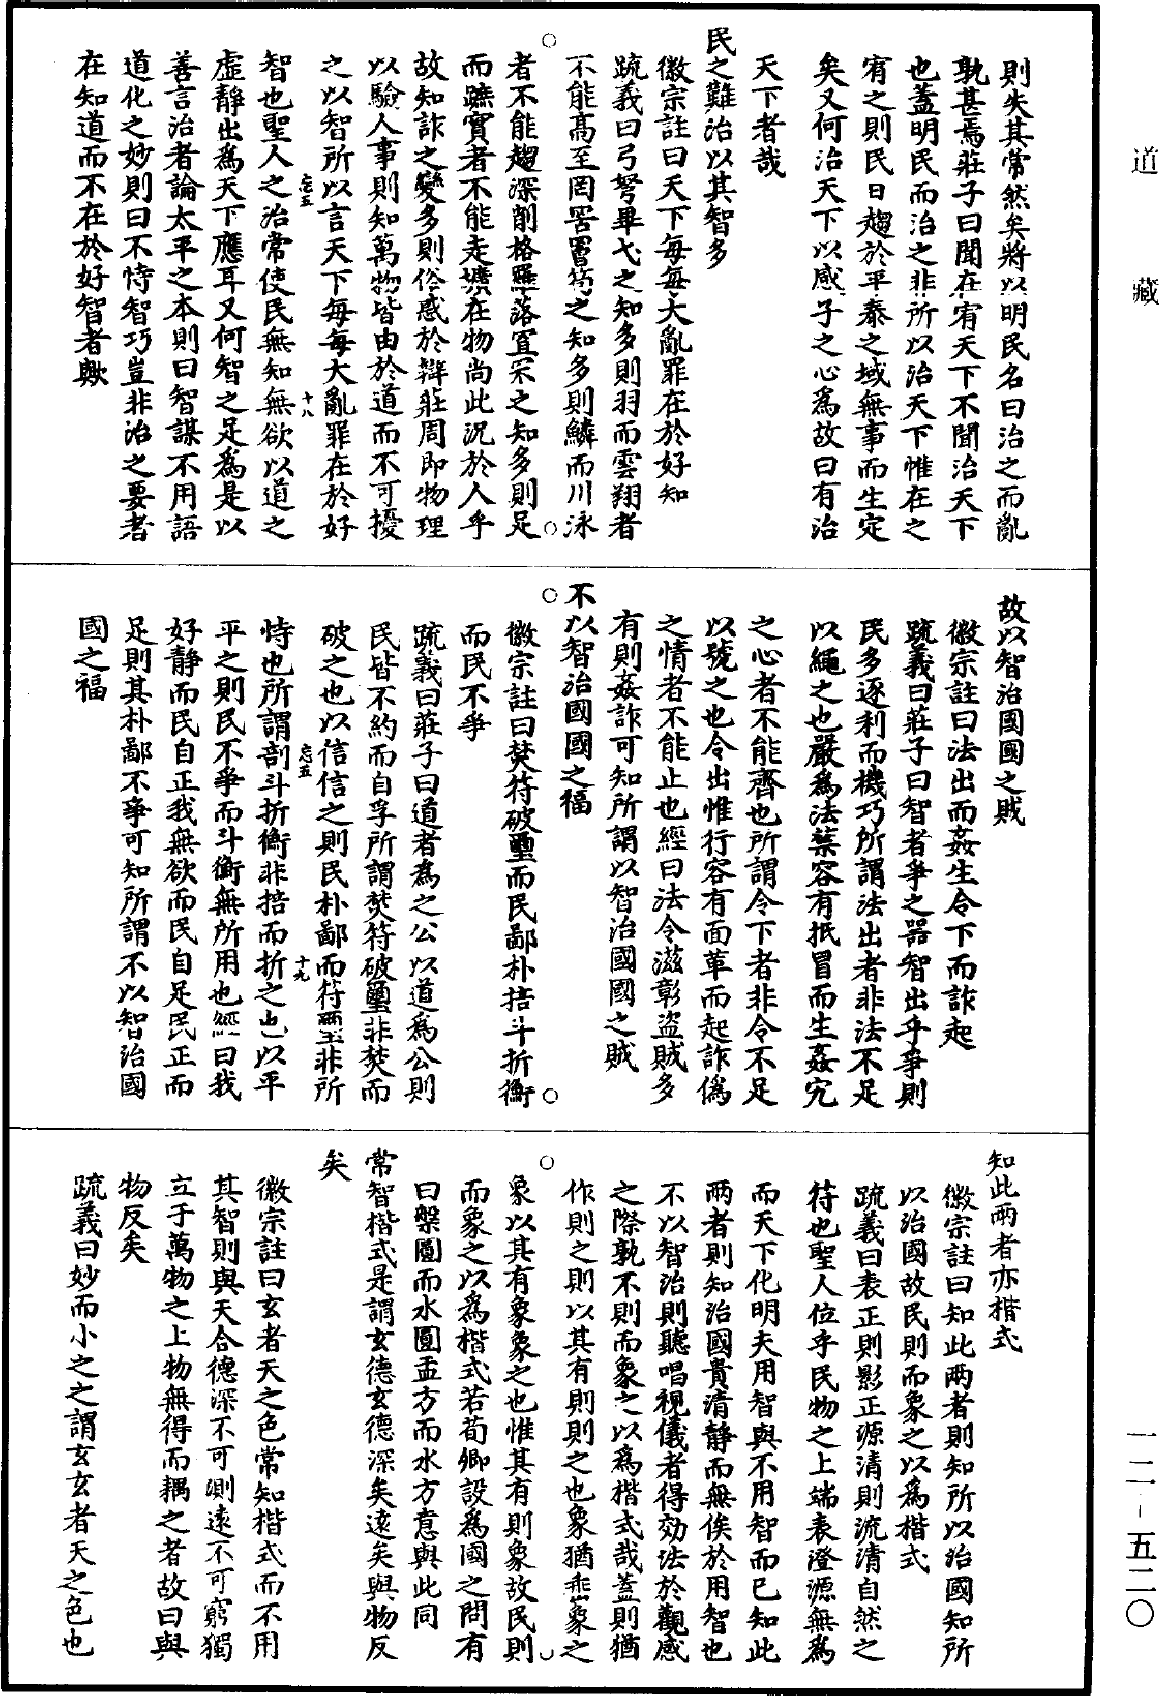 道藏
則失其常然矣將以明民名曰治之而亂
孰甚焉莊子曰聞在宥天下不聞治天下
也蓋明民而治之非所以治天下惟在之
宥之則民日趨於平泰之域無事而生定
矣又何治天下以感子之心為故曰有治
天下者哉
民之難治以其智多
徽宗註曰天下每每大亂罪在於好知
疏義曰弓弩畢弋之知多則羽而雲翔者
不能高至罔罟罾笱之知多則鱗而川泳
者不能趨深削格羅落罝罘之知多則足
而蹠實者不能走壙在物尚此況於人乎
故知詐之變多則俗惑於辯莊周即物理
以驗人事則知萬物皆由於道而不可擾
之以智所以言天下每每大亂罪在於好
忘五
十八
智也聖人之治常使民無知無欲以道之
虛靜出為天下應耳又何智之足為是以
善言治者論太平之本則曰智謀不用語
道化之妙則曰不恃智巧豈非治之要者
在知道而不在於好智者歟
故以智治國國之賊
徽宗註曰法出而姦生令下而詐起
疏義曰莊子曰智者爭之器智出乎爭則
民多逐利而機巧所謂法出者非法不足
以繩之也嚴為法禁容有抵冒而生姦宄
之心者不能齊也所謂令下者非令不足
以號之也令出惟行容有面革而起詐偽
之情者不能止也經曰法令滋彰盜賊多
有則姦詐可知所謂以智治國國之賊
不以智治國國之福
徽宗註曰焚符破璽而民鄙朴掊斗折衡
而民不爭
疏義曰莊子曰道者為之公以道為公則
民皆不約而自孚所謂焚符破璽非焚而
破之也以信信之則民朴鄙而符璽非所
忘五
十九
恃也所謂剖斗折衡非掊而折之也以平
平之則民不爭而斗衡無所用也經曰我
好靜而民自正我無欲而民自足民正而
足則其朴鄙不爭可知所謂不以智治國
國之福
知此兩者亦楷式
徽宗註曰知此兩者則知所以治國知所
以治國故民則而象之以為楷式
疏義曰表正則影正源清則流清自然之
符也聖人位乎民物之上端表澄源無為
而天下化明夫用智與不用智而已知此
兩者則知治國貴清靜而無俟於用智也
不以智治則聽唱視儀者得効法於觀感
之際孰不則而象之以為楷式哉蓋則猶
作則之則以其有則則之也象猶垂象之
象以其有象象之也惟其有則象故民則
而象之以為楷式若荀卿設為國之問有
曰槃圓而水圓盂方而水方意與此同
常智楷式是謂玄德玄德深矣遠矣與物反
矣
徽宗註曰玄者天之色常知楷式而不用
其智則與天合德深不可測遠不可窮獨
立于萬物之上物無得而耦之者故曰與
物反矣
疏義曰妙而小之之謂玄玄者天之色也
一二-五二〇